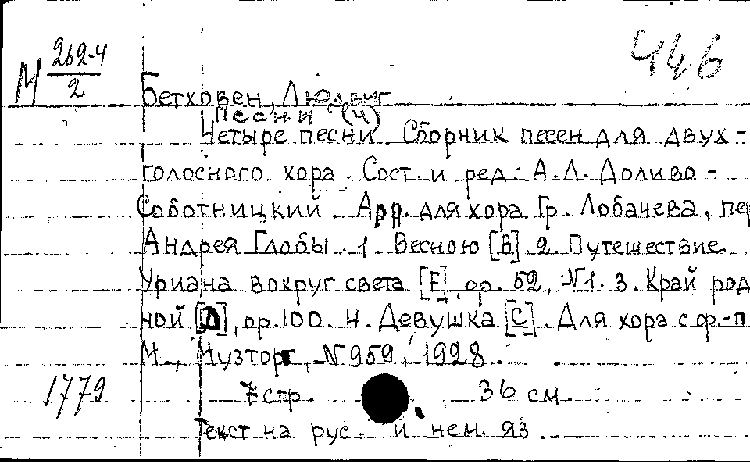 М 262-4/2
446
Бетховен, Людвиг
Песни (4)
Четыре песни. Сборник песен для двух-
голосного хора. Сост. и ред. А.Л. Доливо-
Соботницкий. Арр. для хора Гр. Лобачева, пер
Андрея Глобы. 1. Весною [B]. 2. Путешествие
Уриана вокруг света [E], ор. 52, №1. 3. Край род
ной [D], ор. 100. 4. Девушка [C]. Для хора с ф.-п
М., Музторг, №959, 1928.
1779
7 стр. 36 см
Текст на рус. и нем. яз